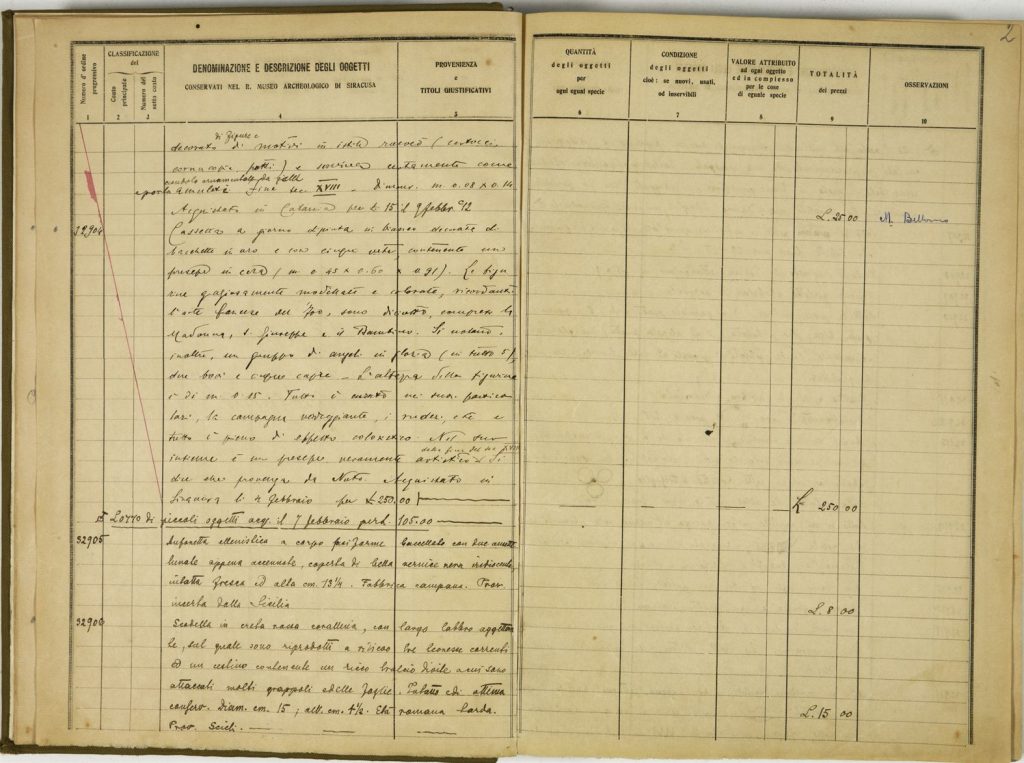 2
Numero d'ordine progressivo
CLASSIFICAZIONE
del
Conto principale
Numero del sotto conto
DENOMINAZIONE E DESCRIZIONE DEGLI OGGETTI
CONSERVATI NEL R. MUSEO ARCHEOLOGICO DI SIRACUSA
PROVENIENZA
e
TITOLI GIUSTIFICATIVI
QUANTITÀ
degli oggetti
per
ogni egual specie
CONDIZIONE
degli oggetti
cioè: se nuovi, usati,
od inservibili
VALORE ATTRIBUITO
ad ogni oggetto
ed in complesso
per le cose
di eguale specie
TOTALITÀ
dei prezzi
OSSERVAZIONI
1 2 3 4 5 6 7 8 9 10
di figure e
decorato di motivi in istile
cornucopie, putti) e serviva certamente come
fine sec XVIII – dimens. m 0.08 x 0.14
Acquistato in Catania per £ 15 il 9 febbr. 12
L. 25 00 M. Bellomo
32904 Cassetta a giorno dipinta in bianco decorata di
bacchette in oro e con cinque vetri, contenente un
presepe in cera (m 0.45 x 0.60 x 0.91). Le figu
rine graziosamente modellate e colorate, ricordanti
l'arte francese del 700, sono diciotto, compresi la
Madonna, S. Giuseppe e il Bambino. Si notano,
inoltre, un gruppo di angeli in gloria (in tutto 5),
due bovi e cinque capre – L'altezza delle figurine
è di m 0.15. Tutto è curato nei suoi partico
lari, la campagna verdeggiante, i ruderi, che e
tutto è pieno di effetto coloristico. Nel suo
della fine del sec XVIII
insieme è un presepe veramente artistico. Si
dice che provenga da Noto. Acquistato in
Siracusa li 4 febbraio per £ 250.00
£ 250 00
Lotto di piccoli oggetti acq. il 7 febbraio per L. 105.00
32905 Anforetta ellenistica a corpo piriforme baccellato con due anset
lunate appena accennate, coperta di bella vernice nera iridescente
intatta fresca ed alta cm. 13 1/4. Fabbrica campana. Prov.
incerta dalla Sicilia
L. 8 00
32906 Scodella in creta rossa corallina, con largo labbro aggettan
te, sul quale sono riprodotti a rilievo tre leonesse correnti
ed un cestino contenente un ricco tralcio di vite a cui sono
attaccati molti grappoli e delle foglie. Intatto e di ottima
conserv. Diam. cm. 15; alt. cm. 4 1/2. Età romana tarda.
Prov. Scicli.
L. 15 00